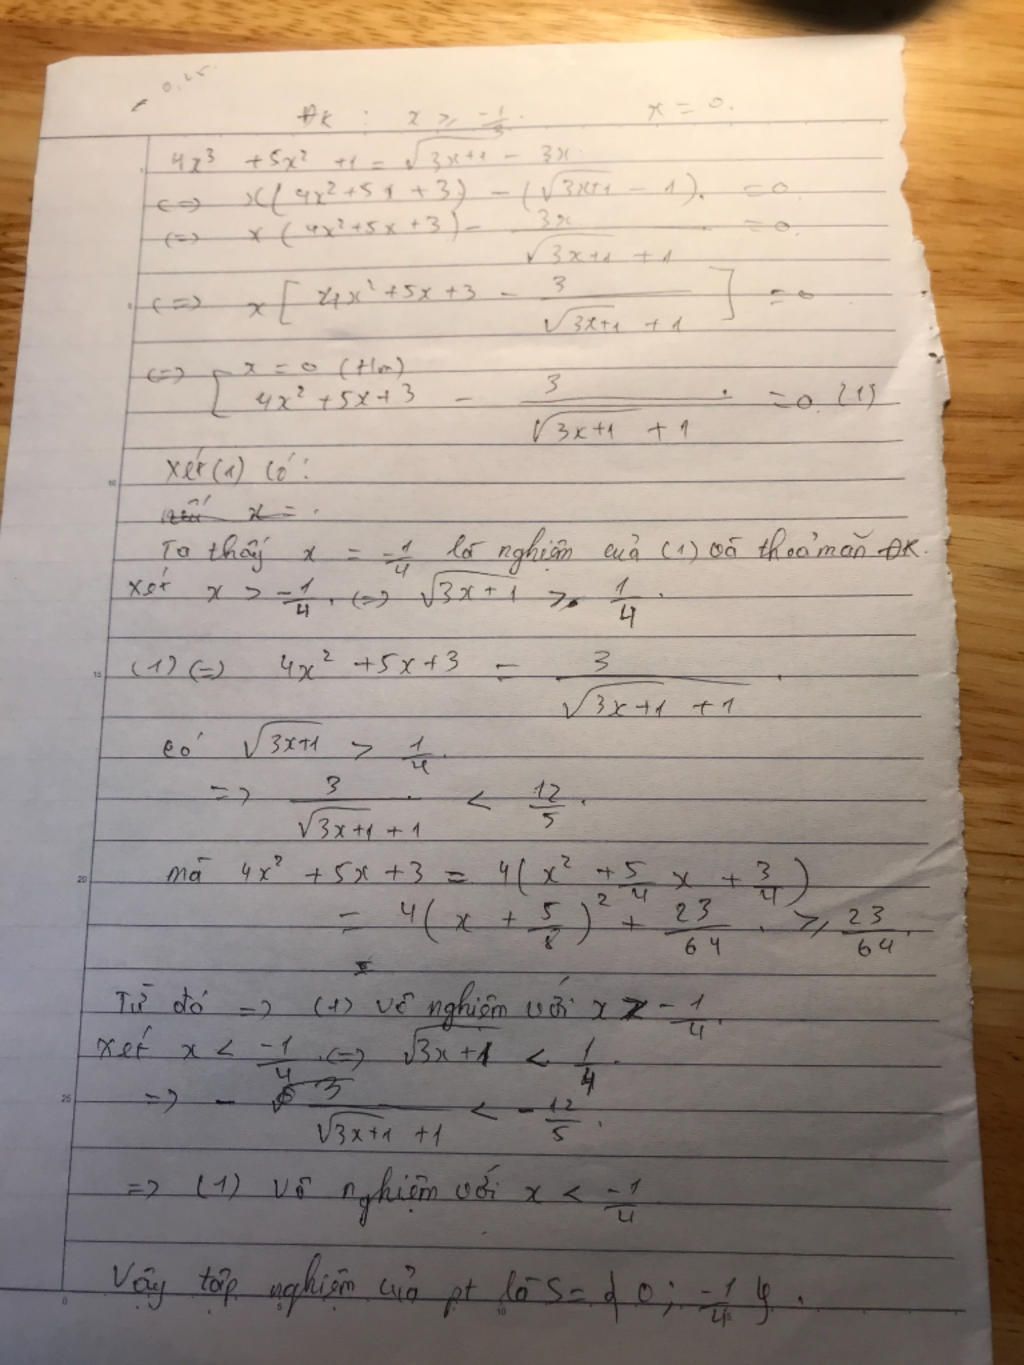 0,25.
ĐK : x ≥ -1/3. x = 0.
4x³ + 5x² + 1 = √(3x+1) - 3x
<=> x(4x² + 5x + 3) - (√(3x+1) - 1). = 0
<=> x(4x² + 5x + 3) - 3x/(√(3x+1) + 1) = 0.
<=> x[4x² + 5x + 3 - 3/(√(3x+1) + 1)] = 0
<=> [ x = 0 (t/m)
4x² + 5x + 3 - 3/(√(3x+1) + 1) = 0 (1)
Xét (1) có:
nếu x = .
Ta thấy x = -1/4 là nghiệm của (1) và thoả mãn ĐK.
Xét x > -1/4. <=> √(3x+1) > 1/4.
(1) <=> 4x² + 5x + 3 = 3/(√(3x+1) + 1).
có √(3x+1) > 1/4.
=> 3/(√(3x+1) + 1) < 12/5.
mà 4x² + 5x + 3 = 4(x² + 5/4 x + 3/4)
= 4(x + 5/8)² + 23/64. ≥ 23/64.
Từ đó => (1) vô nghiệm với x > -1/4.
Xét x < -1/4. <=> √(3x+1) < 1/4.
=> - 3/(√(3x+1) + 1) < -12/5.
=> (1) vô nghiệm với x < -1/4
Vậy tập nghiệm của pt là S = {0; -1/4}.